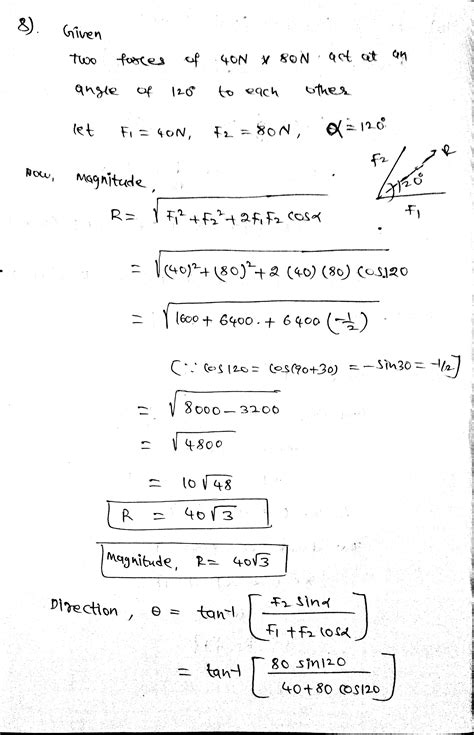 8). Given
Two forces of 40N & 80N act at an
angle of 120° to each other
let F₁ = 40N, F₂ = 80N, α = 120°
F₂ R
120°
F₁
Now, Magnitude,
R = √(F₁² + F₂² + 2F₁F₂ cosα)
= √((40)² + (80)² + 2 (40) (80) cos120)
= √(1600 + 6400. + 6400 (-1/2))
(∵ cos120 = cos(90+30) = -sin30 = -1/2]
= √(8000 - 3200)
= √4800
= 10√48
R = 40√3
Magnitude, R = 40√3
Direction, θ = tan-1 [F₂ sinα / F₁ + F₂ cosα]
= tan-1 [80 sin120 / 40+80 cos120]